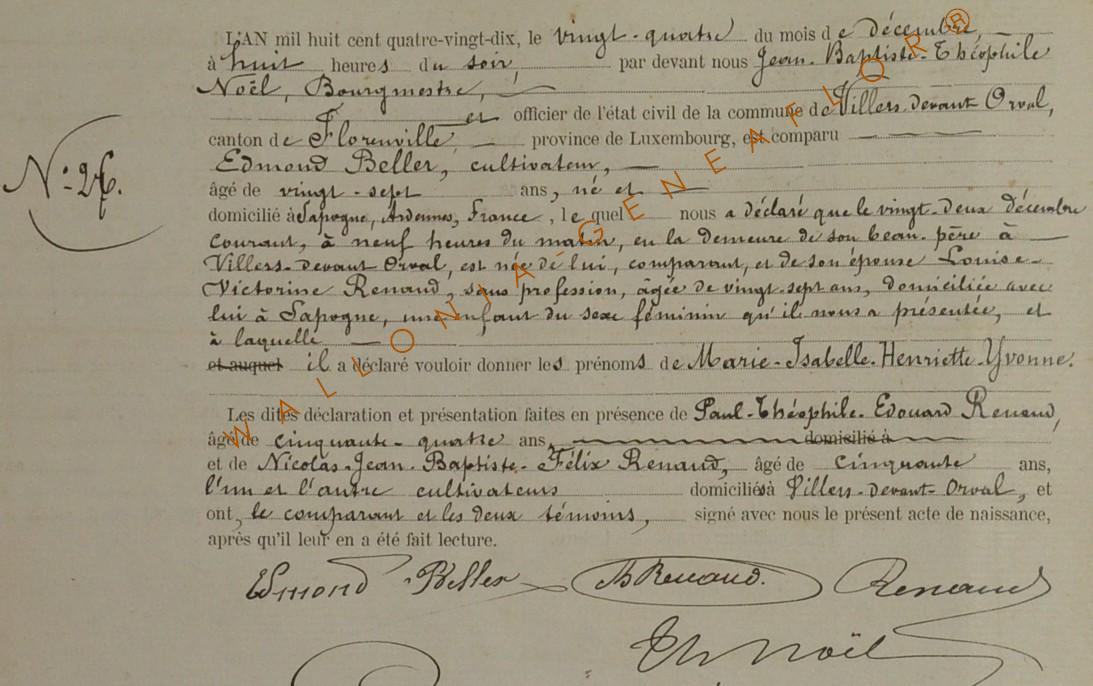 L'AN mil huit cent quatre-vingt-dix, le vingt-quatre du mois de décembre,
à huit heures du soir, par devant nous Jean-Baptiste-Théophile
Noël, Bourgmestre,
et officier de l'état civil de la commune de Villers-devant Orval,
canton de Florenville, province de Luxembourg, est comparu
Edmond Beller, cultivateur,
N° 26.
âgé de vingt-sept ans, né et
domicilié à Sapogne, Ardennes, France, lequel nous a déclaré que le vingt-deux décembre
courant, à neuf heures du matin, en la demeure de son beau-père à
Villers-devant Orval, est née de lui, comparant, et de son épouse Louise-
Victorine Renaud, sans profession, âgée de vingt-sept ans, domiciliée avec
lui à Sapogne, une enfant du sexe féminin qu'il nous a présentée, et
à laquelle
et auquel il a déclaré vouloir donner les prénoms de Marie-Isabelle-Henriette-Yvonne.
Les dites déclaration et présentation faites en présence de Paul-Théophile-Edouard Renaud,
âgé de cinquante-quatre ans, domicilié à
et de Nicolas-Jean-Baptiste-Félix Renaud, âgé de cinquante ans,
l'un et l'autre cultivateurs domiciliés à Villers-devant-Orval, et
ont, le comparant et les deux témoins, signé avec nous le présent acte de naissance,
après qu'il leur en a été fait lecture.
Edmond Beller Th Renaud. Renaud
Th Noël
WALLONIA GENEAFLOR®